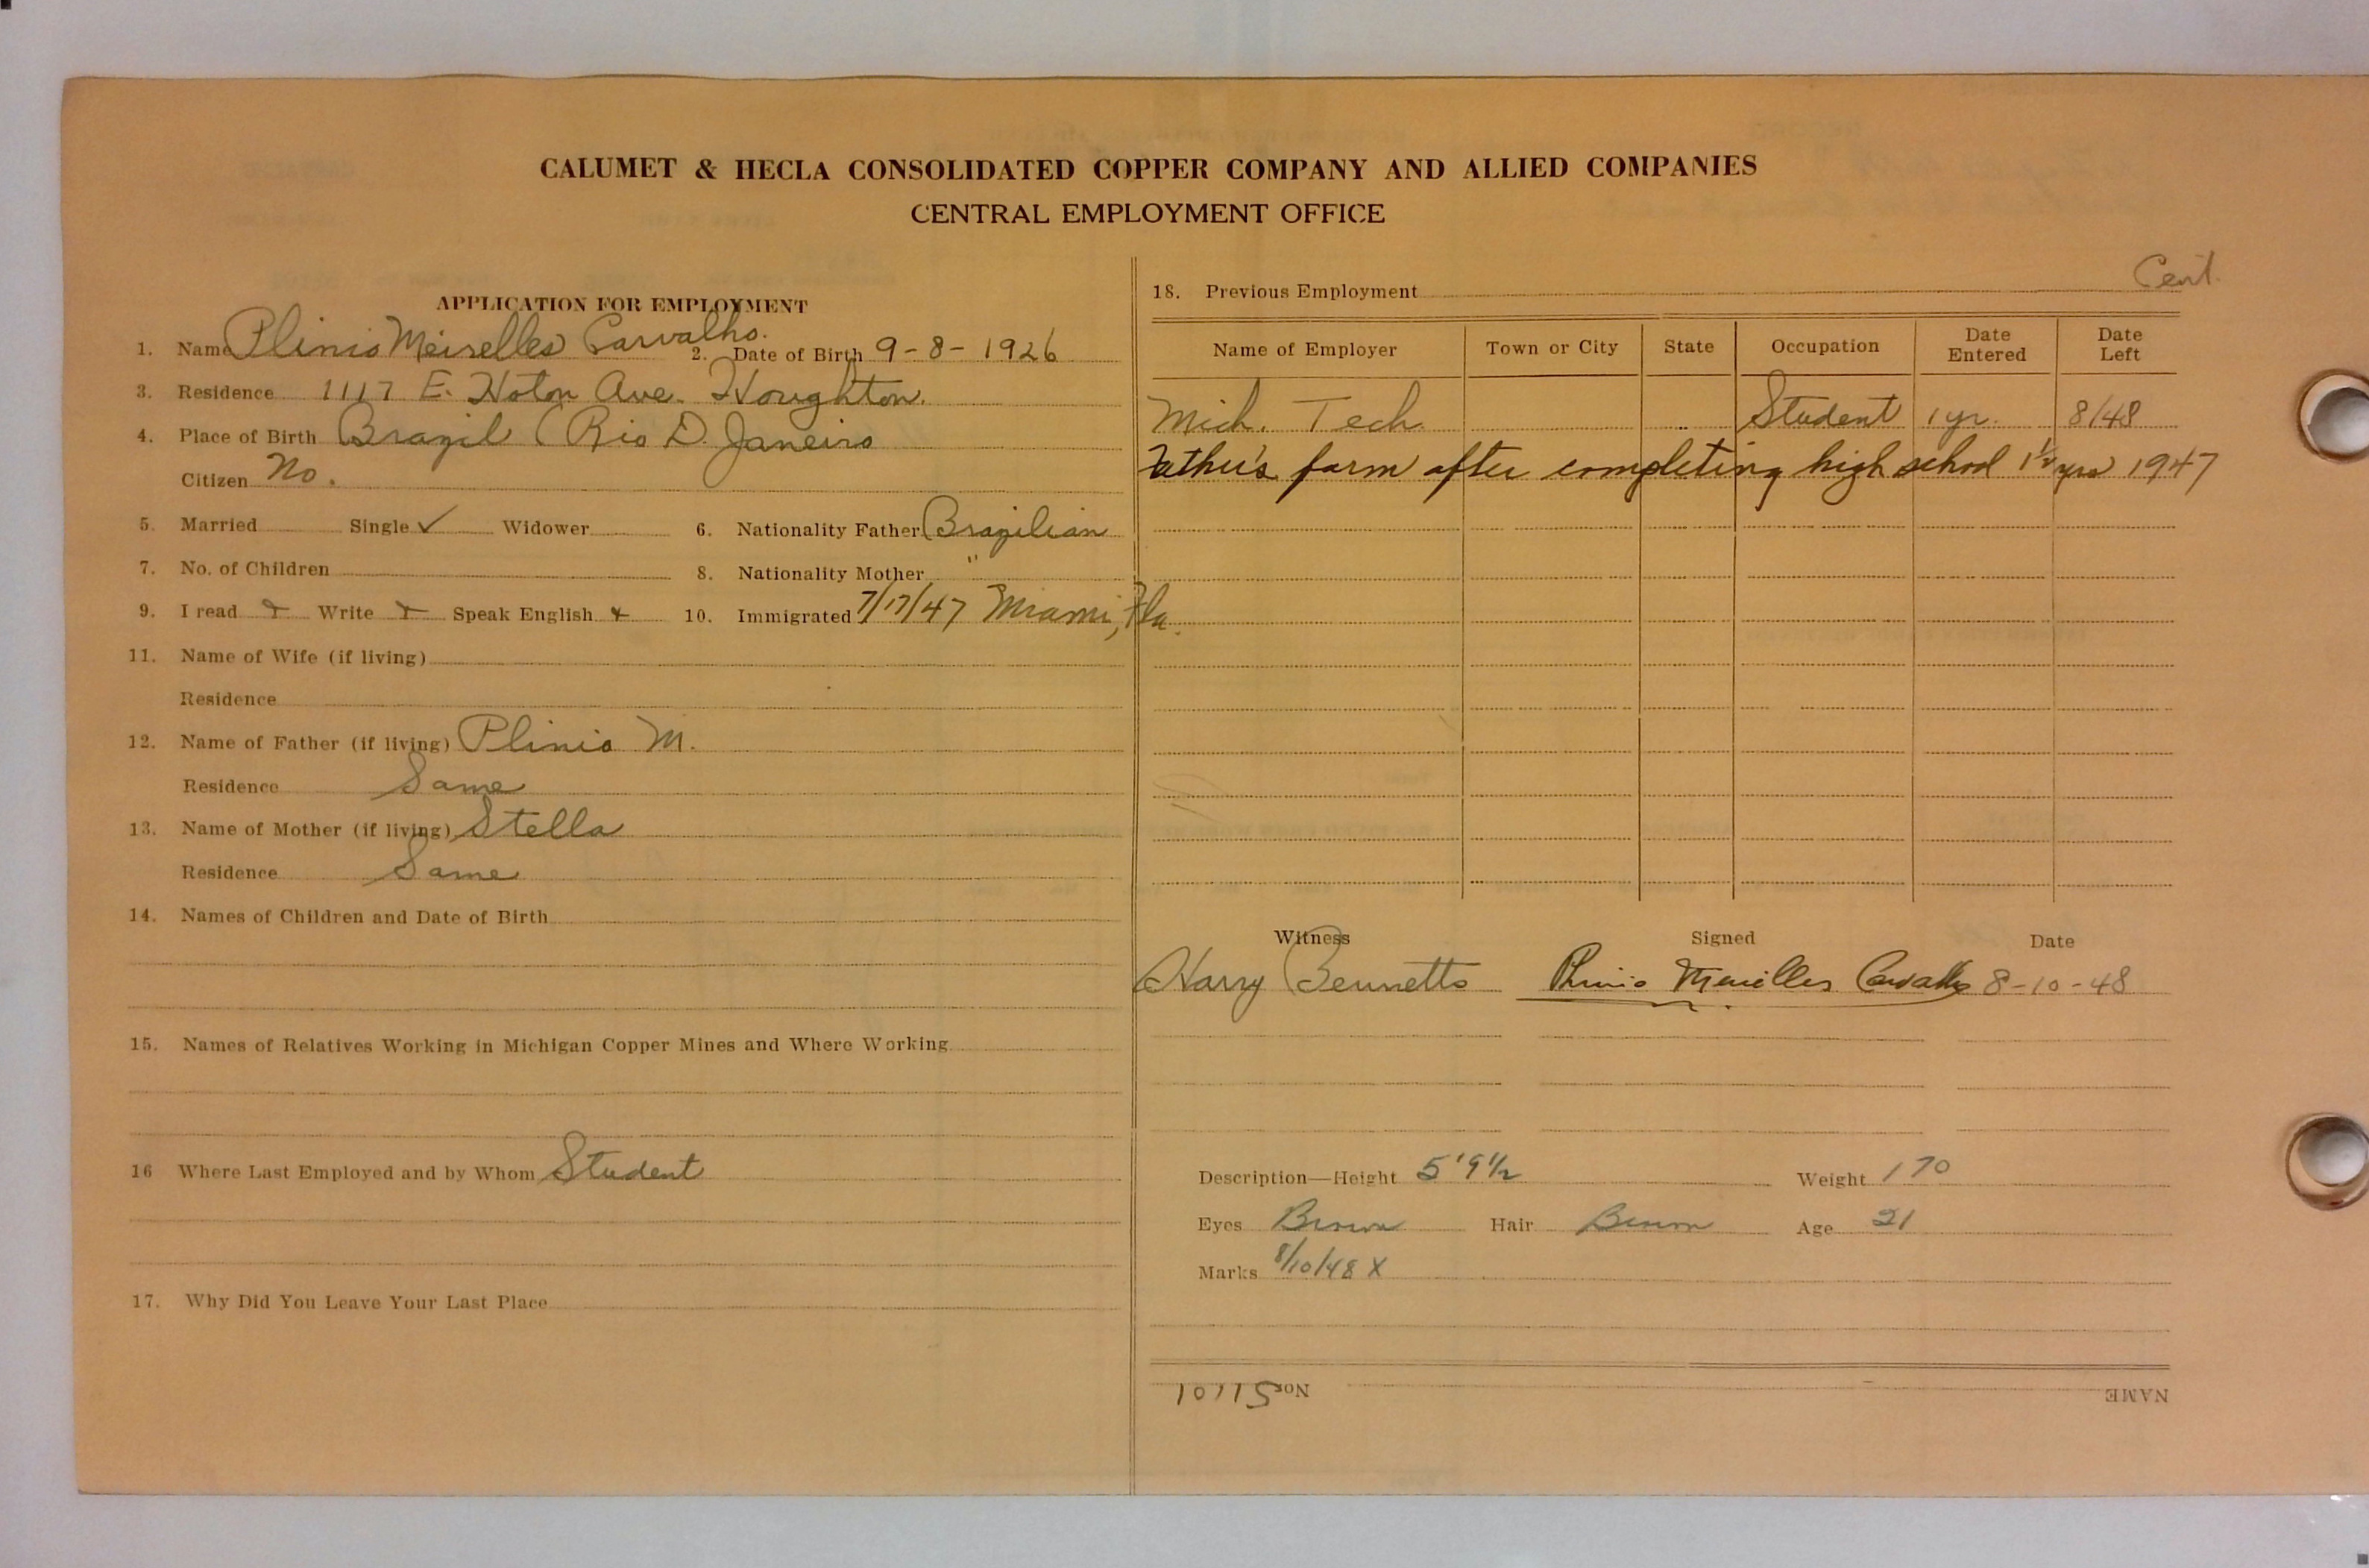 CALUMET & HECLA CONSOLIDATED COPPER COMPANY AND ALLIED COMPANIES
CENTRAL EMPLOYMENT OFFICE
APPLICATION FOR EMPLOYMENT
1. Name Plinio Meirelles Carvalho. 2. Date of Birth 9-8-1926
3. Residence 1117 E. Hoton Ave. Houghton.
4. Place of Birth Brazil (Rio D. Janeiro
Citizen No.
5. Married Single ✓ Widower 6. Nationality Father Brazilian
7. No. of Children 8. Nationality Mother "
9. I read Write Speak English 10. Immigrated 7/17/47 Miami, Fla.
11. Name of Wife (if living)
Residence
12. Name of Father (if living) Plinio M.
Residence Same
13. Name of Mother (if living) Stella
Residence Same
14. Names of Children and Date of Birth
15. Names of Relatives Working in Michigan Copper Mines and Where Working
16 Where Last Employed and by Whom Student
17. Why Did You Leave Your Last Place
18. Previous Employment
Name of Employer Town or City State Occupation Date Entered Date Left
Mich. Tech Student 1 yr. 8/48
Father's farm after completing high school 1½ yrs 1947
Witness Signed Date
Harry Bennetts Plinio Meirelles Carvalho 8-10-48
Description—Height 5'9½ Weight 170
Eyes Brown Hair Brown Age 21
Marks 8/10/48 X
NAME No. 51101